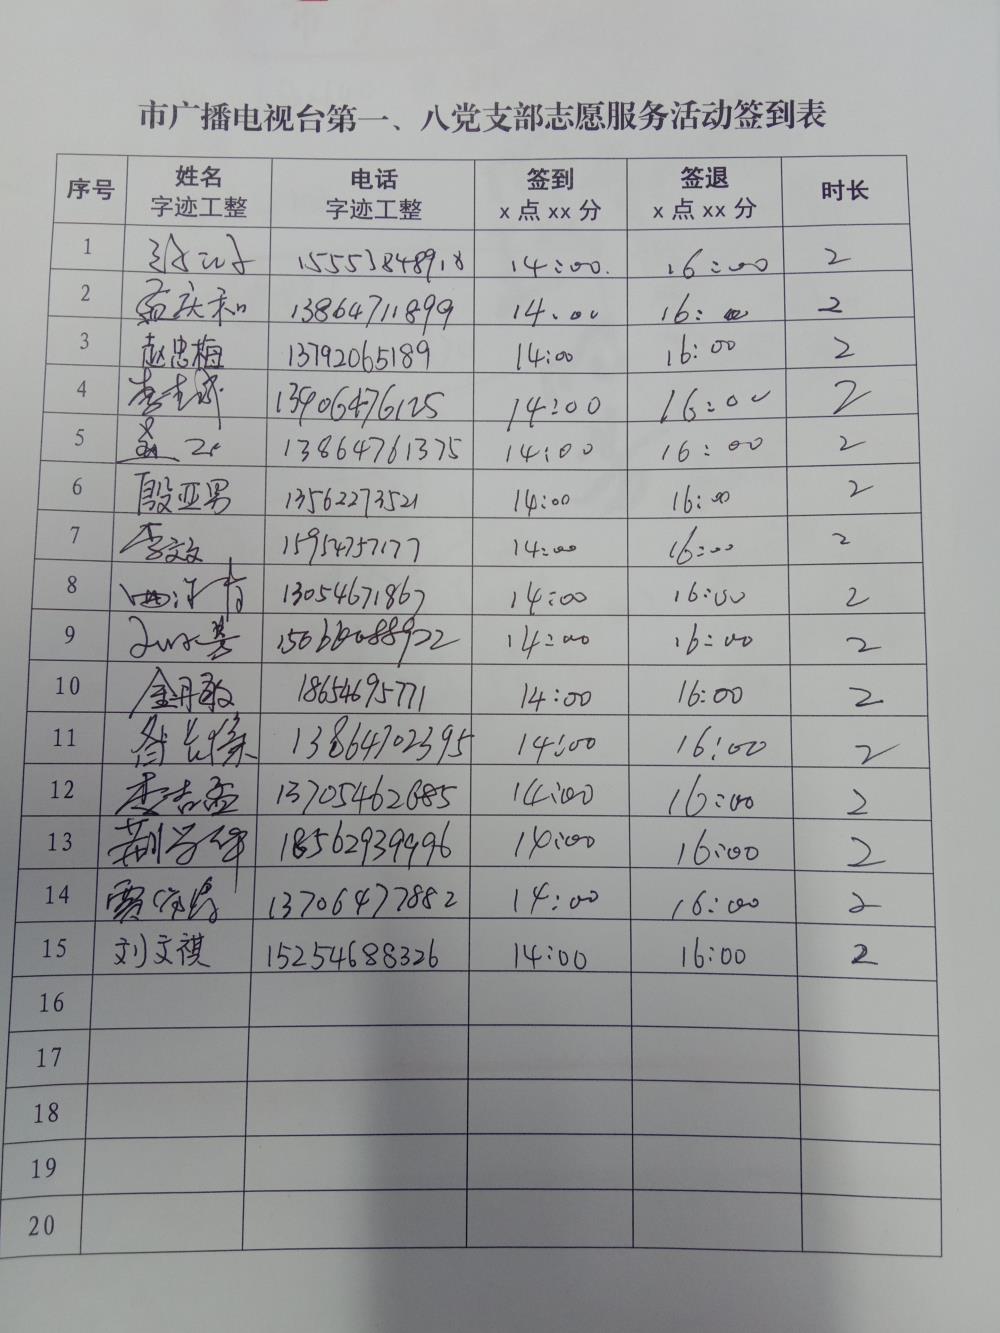 市广播电视台第一、八党支部志愿服务活动签到表
序号 姓名 字迹工整 电话 字迹工整 签到 x 点 xx 分 签退 x 点 xx 分 时长
1 14:00. 16:00 2
2 孟庆和 13864711899 14:00 16:00 2
3 赵忠梅 13792065189 14:00 16:00 2
4 13906476125 14:00 16:00 2
5 13864761375 14:00 16:00 2
6 殷亚男 13562273521 14:00 16:00 2
7 李文文 15954757177 14:00 16:00 2
8 13054671867 14:00 16:00 2
9 14:00 16:00 2
10 金丹敏 18654695771 14:00 16:00 2
11 13864702395 14:00 16:00 2
12 14:00 16:00 2
13 18562939996 14:00 16:00 2
14 13706477882 14:00 16:00 2
15 刘文祺 15254688326 14:00 16:00 2
16
17
18
19
20